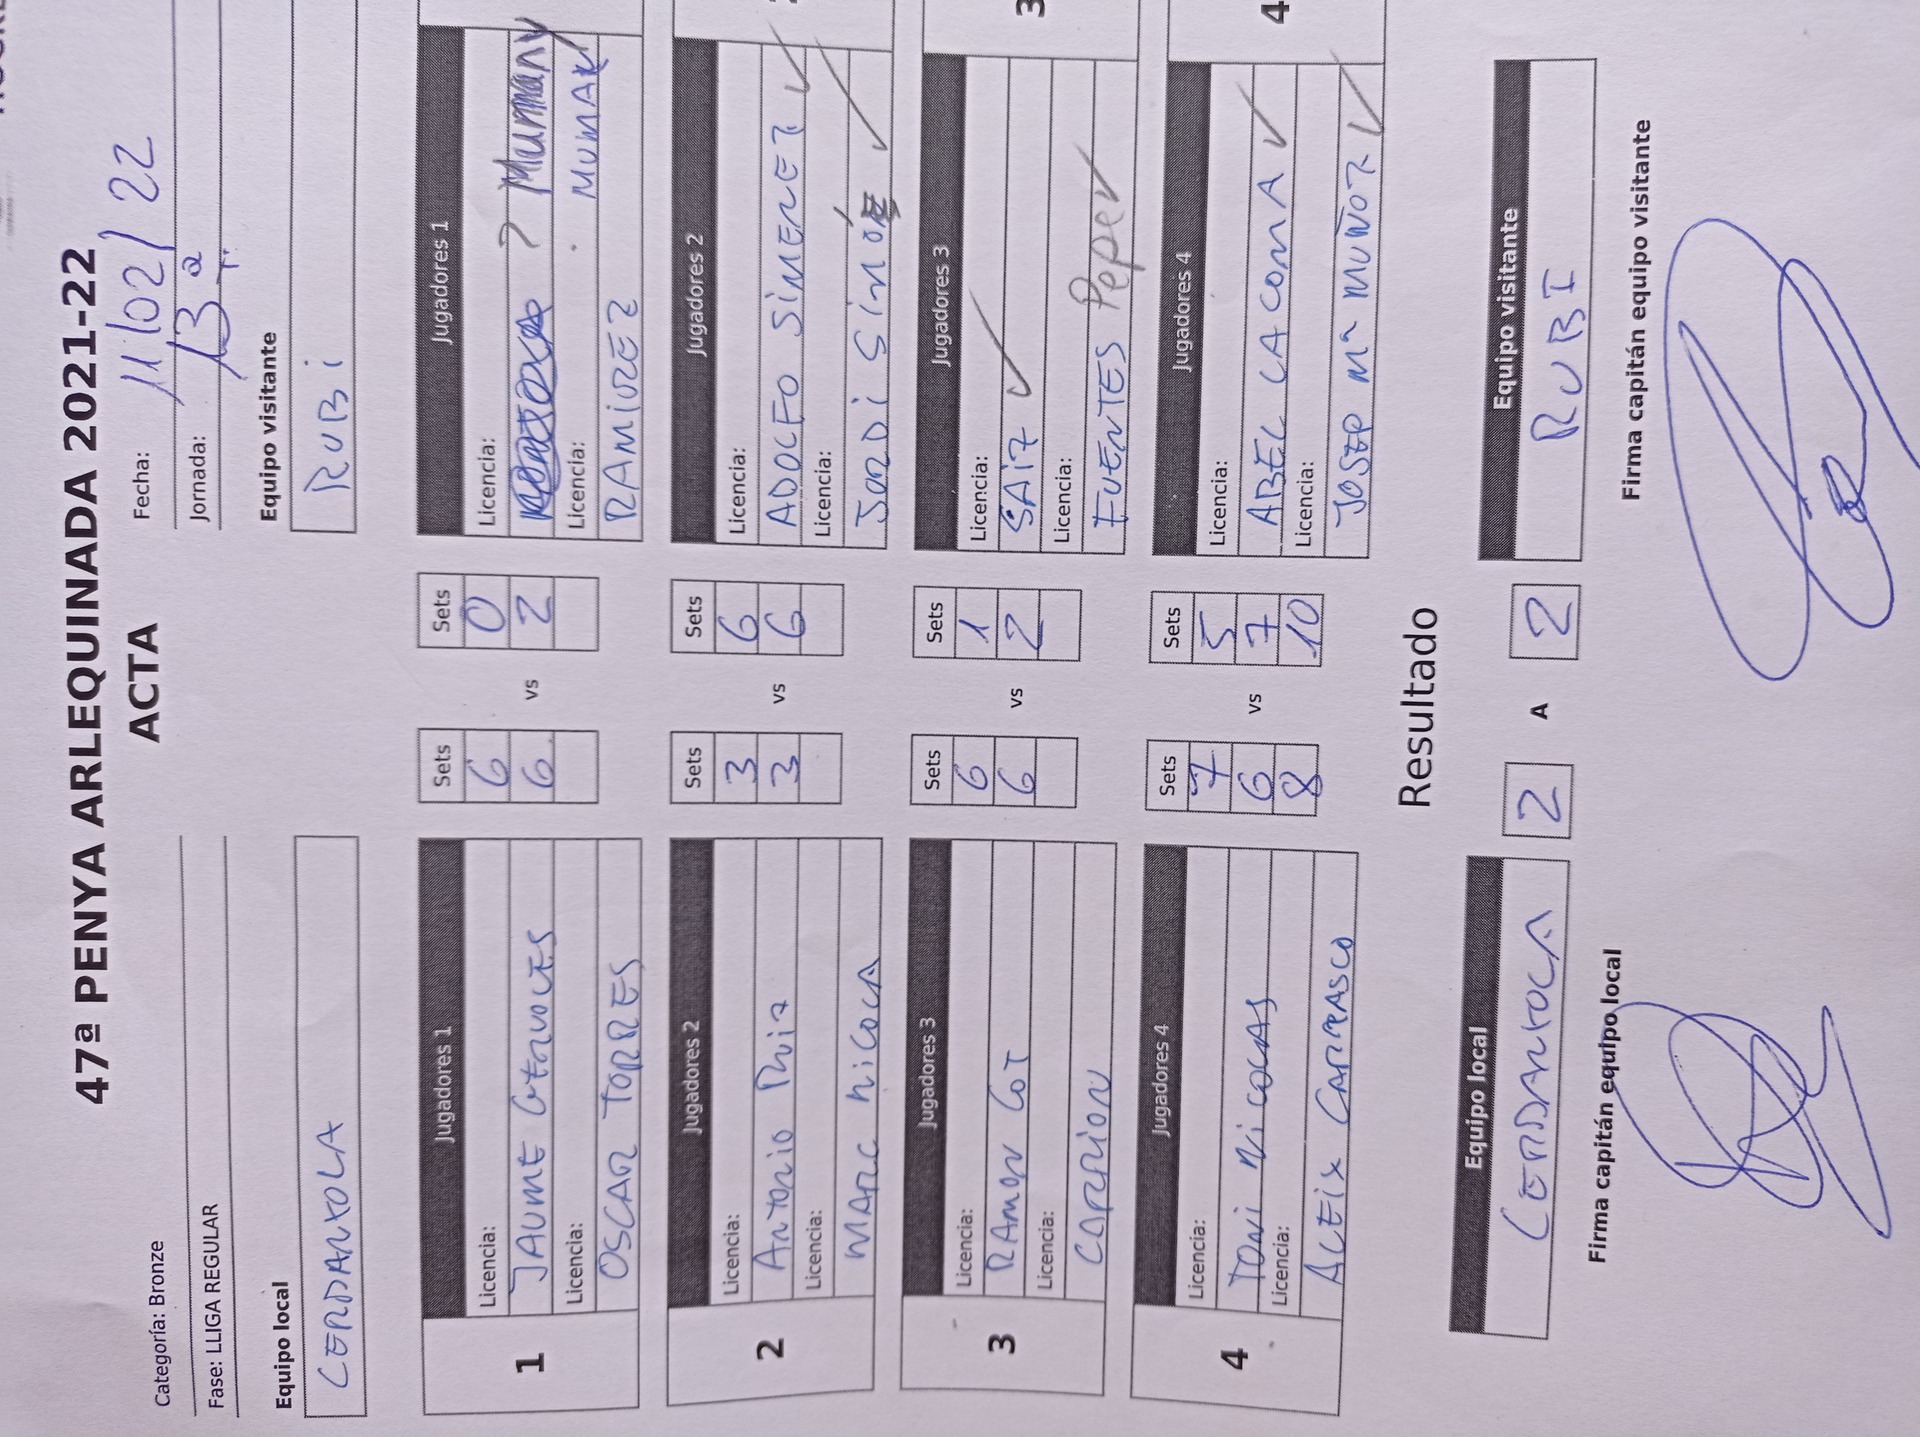 47ª PENYA ARLEQUINADA 2021-22
ACTA
Categoría: Bronze
Fecha: 11/02/22
Fase: LLIGA REGULAR
Jornada: 13ª
Equipo local
Equipo visitante
CERDANYOLA
RUBi
1
Jugadores 1
Sets
Sets
Jugadores 1
Licencia:
6
0
Licencia:
JAUME
6
vs
2
? Mumany
Licencia:
Licencia: MUMANY
OSCAR TORRES
RAMIREZ
2
Jugadores 2
Sets
Sets
Jugadores 2
Licencia:
3
6
Licencia:
ANTONIO RUiZ
3
vs
6
ADOLFO SiMENEZ
Licencia:
Licencia:
MARC NiCOLA
JORDi SiMÓ
3
Jugadores 3
Sets
Sets
Jugadores 3
3
Licencia:
6
1
Licencia:
RAMON COT
6
vs
2
SAiZ
Licencia:
Licencia:
CARRION
FUENTES Pepe
4
Jugadores 4
Sets
Sets
Jugadores 4
4
Licencia:
7
5
Licencia:
TONi NiCOLAS
6
vs
7
ABEL LACOMA
Licencia:
8
10
Licencia:
ALEiX CARRASCO
JOSEP Mª MUÑOZ
Resultado
Equipo local
Equipo visitante
CERDANYOLA
2
A
2
RUBI
Firma capitán equipo local
Firma capitán equipo visitante